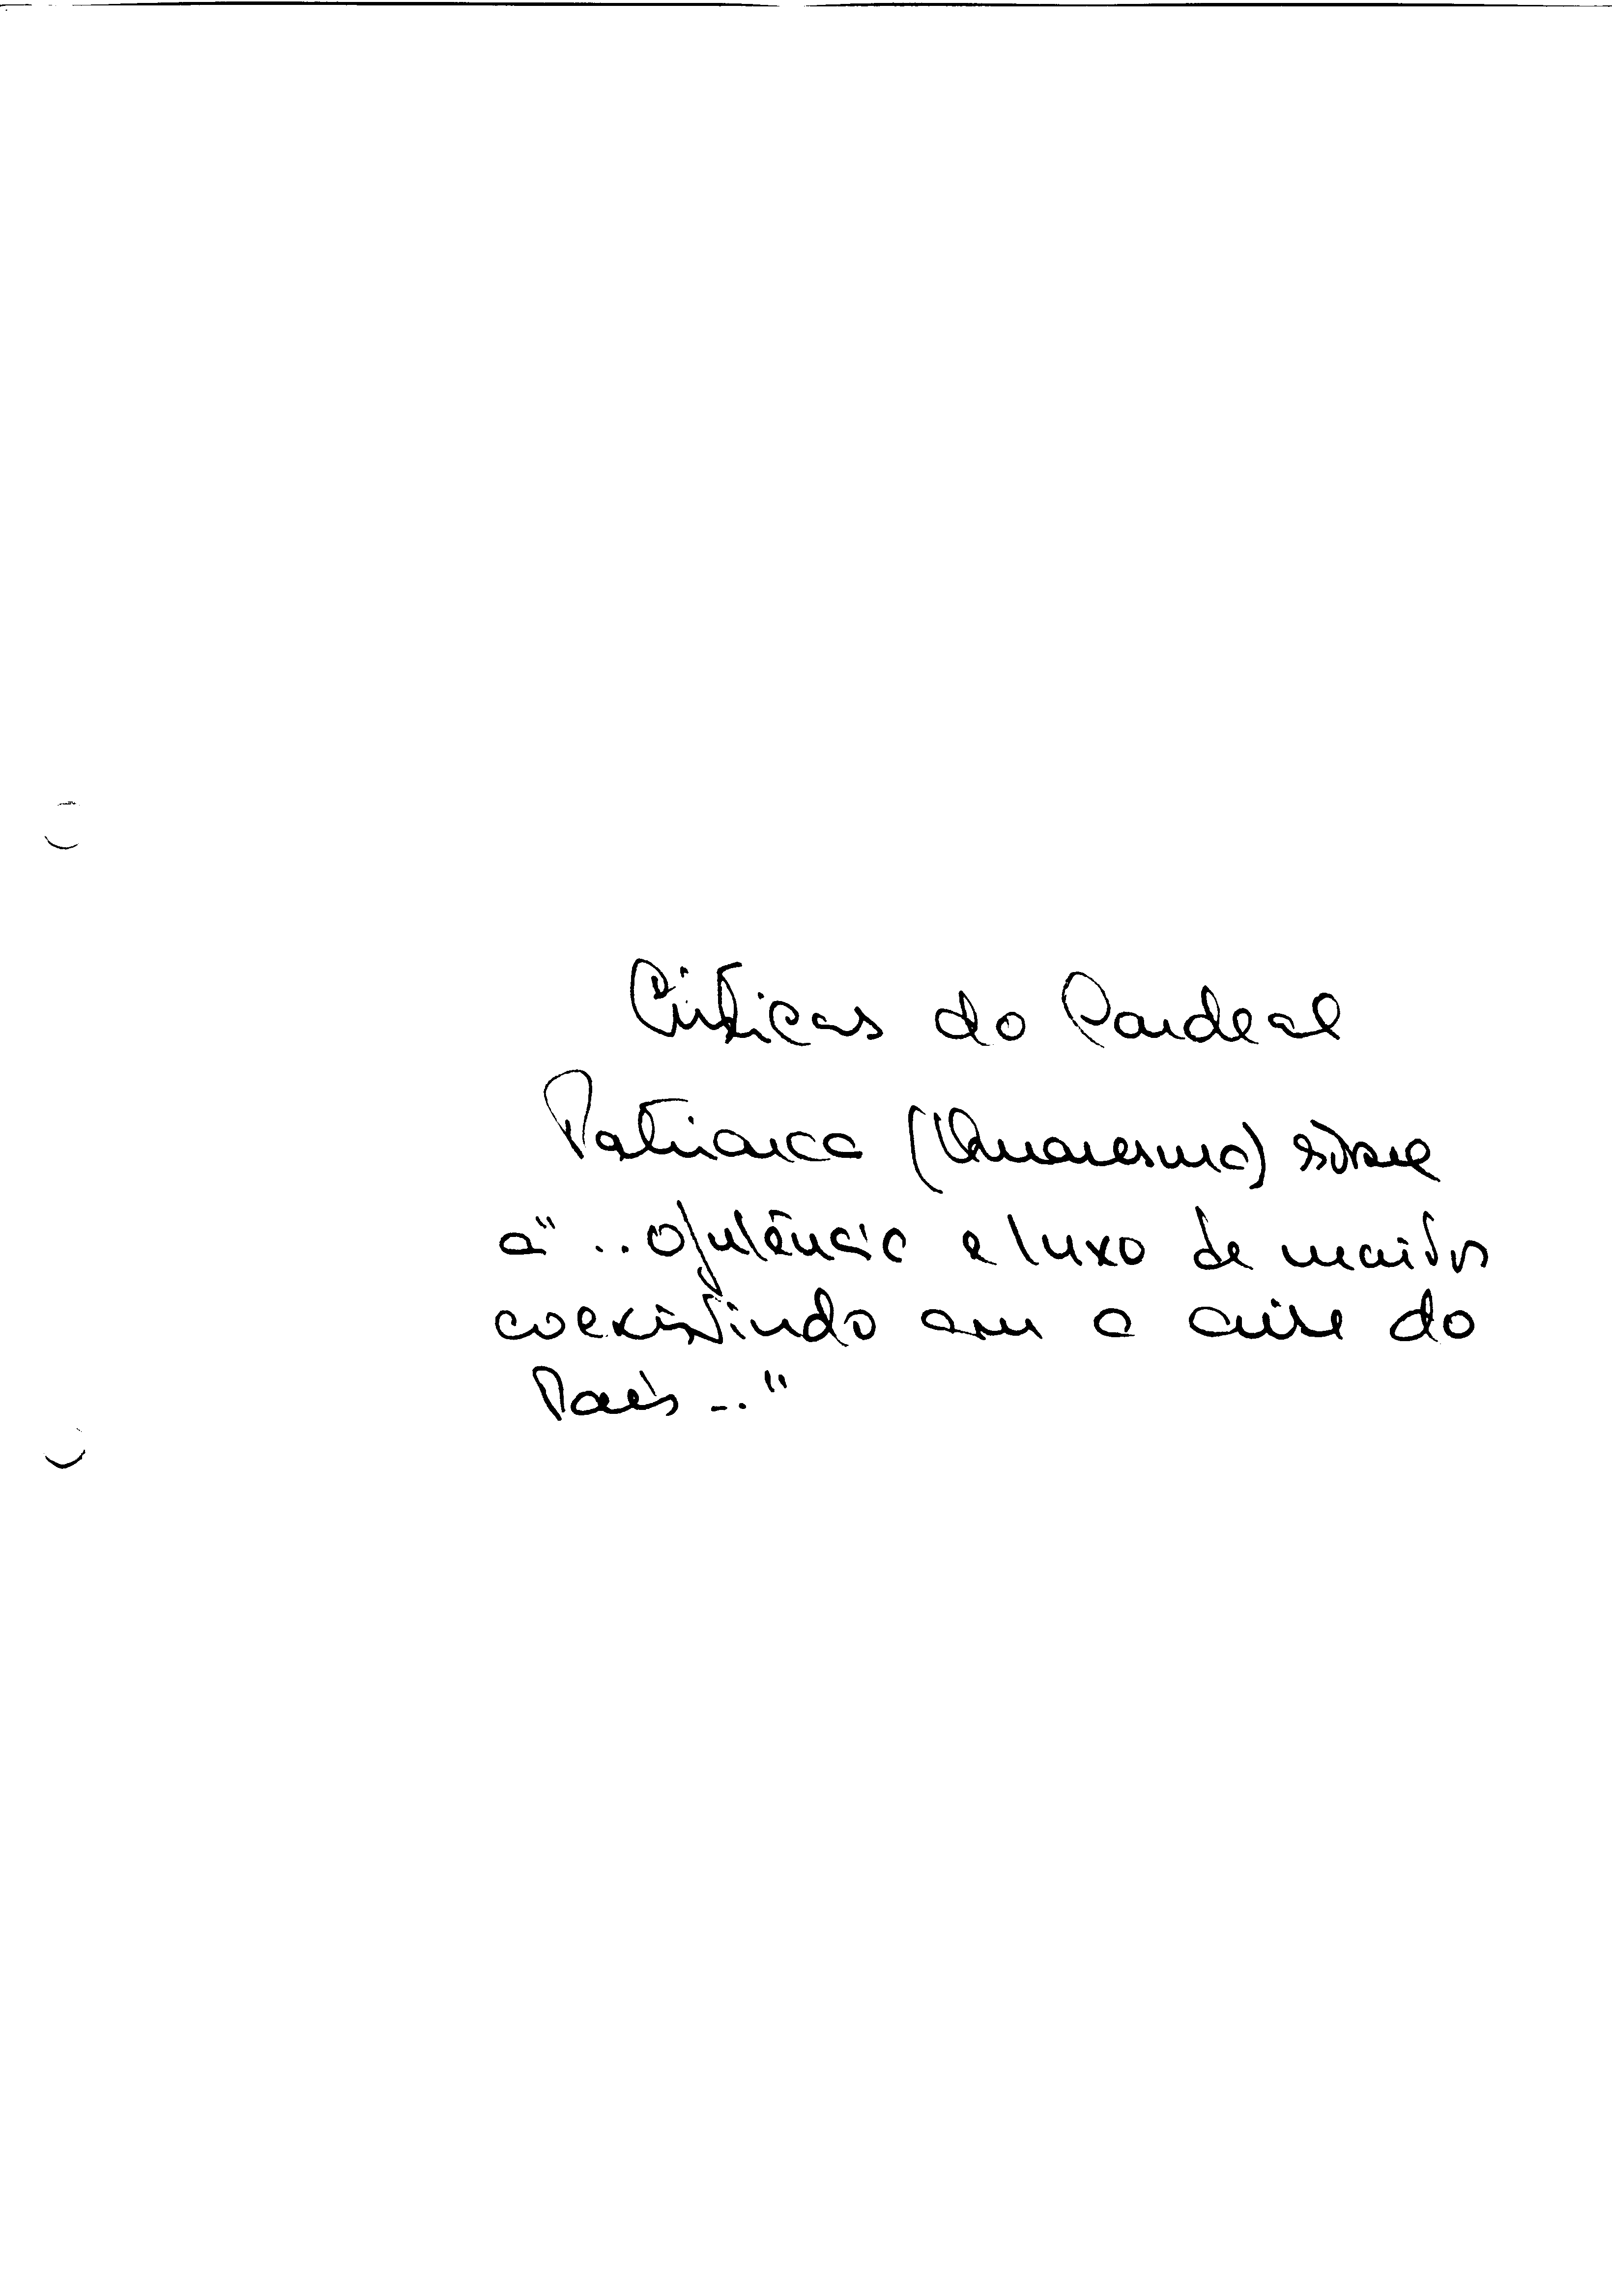 Críticas do Cardeal
Patriarca (Quaresma) sôbre
a "..opulência e luxo de muitos
coexistindo com a crise do
País..."